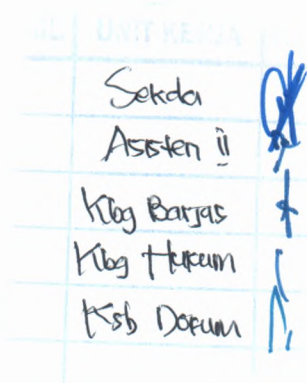 UNIT KERJA
Sekda
Asisten ii
Kbg Barjas
Kbg Hukum
Ksb Dokum